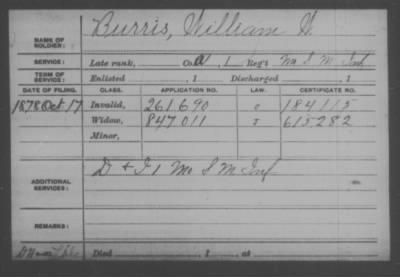 NAME OF SOLDIER: Burris, William H.
SERVICE: Late rank, Co. A, 1 Reg't Mo S M Inf
TERM OF SERVICE: Enlisted , 1 Discharged , 1
DATE OF FILING. CLASS. APPLICATION NO. LAW. CERTIFICATE NO.
1878 Oct 17 Invalid, 261690 184115
Widow, 847011 615282
Minor,
ADDITIONAL SERVICES: D + I 1 Mo S M Inf
REMARKS:
Died , 1 , at